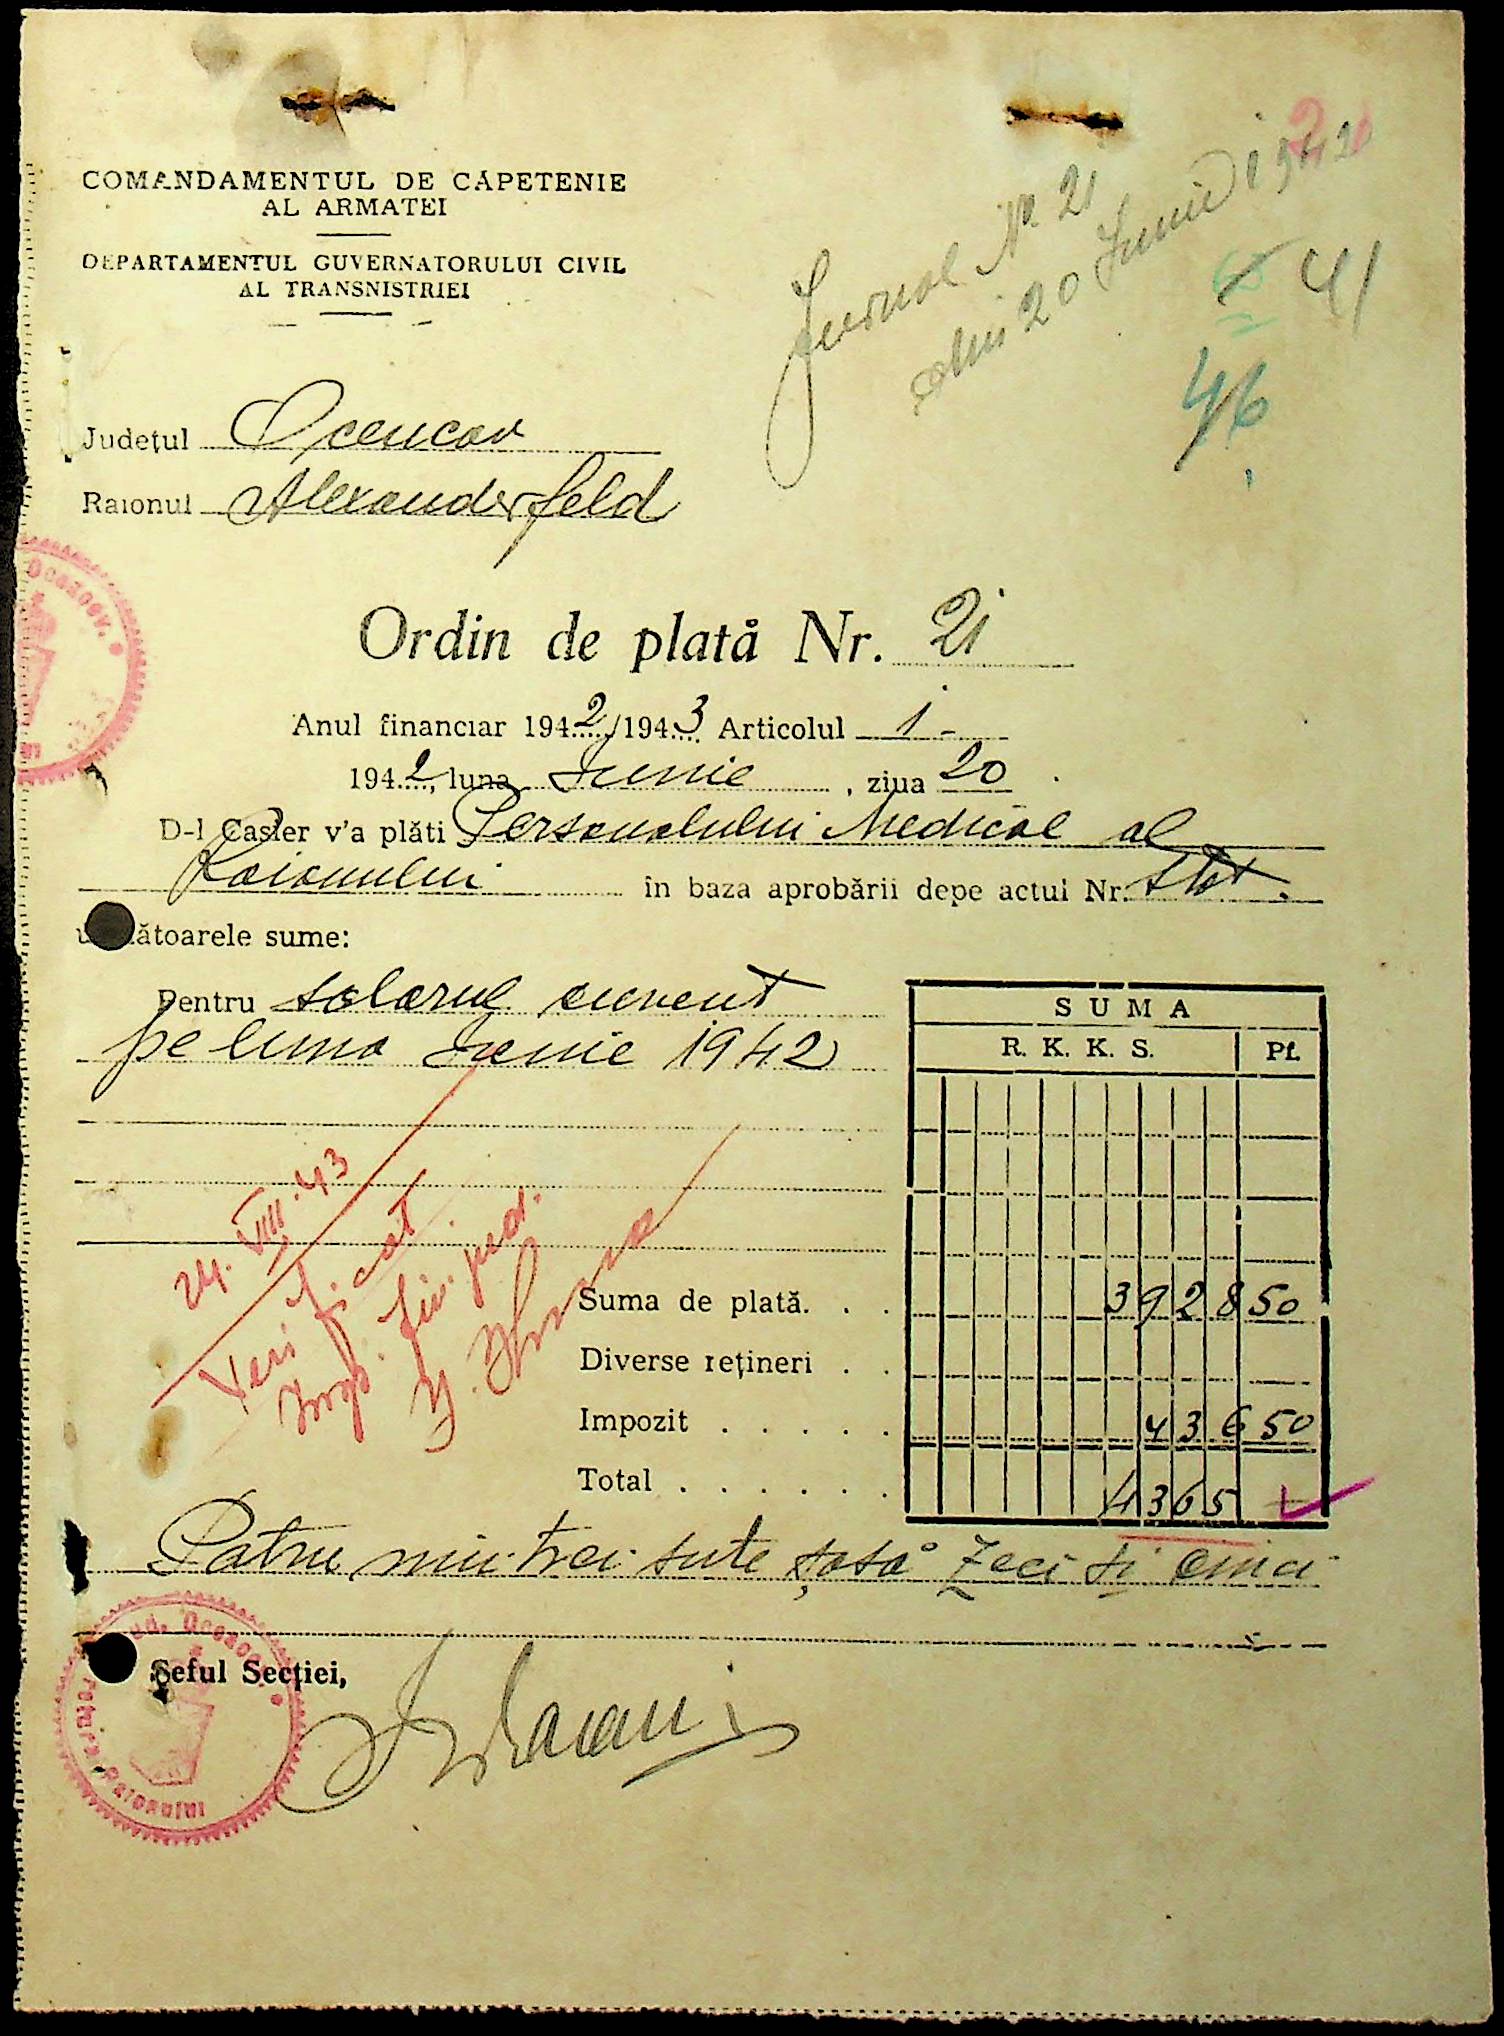 COMANDAMENTUL DE CĂPETENIE
AL ARMATEI
DEPARTAMENTUL GUVERNATORULUI CIVIL
AL TRANSNISTRIEI
21
Jurnal No 21
din 20 Iunie 1942
41
46
Județul Oceacov
Raionul Alexanderfeld
Ordin de plată Nr. 21
Anul financiar 1942/1943 Articolul 1-
1942, luna Iunie, ziua 20
D-l Casier v'a plăti Personalului Medical al
Raionului în baza aprobării depe actul Nr. Stat.
următoarele sume:
Pentru salarul curent
pe luna Iunie 1942
SUMA
R. K. K. S. Pf.
24. VIII. 43
Verificat
Suma de plată. . . 3928 50
Diverse rețineri . .
Impozit . . . . . 436 50
Total . . . . . . 4365 -
Patru mii trei sute șasă zeci și cinci
Șeful Secției,
ud. Oceacov
retura Raionului